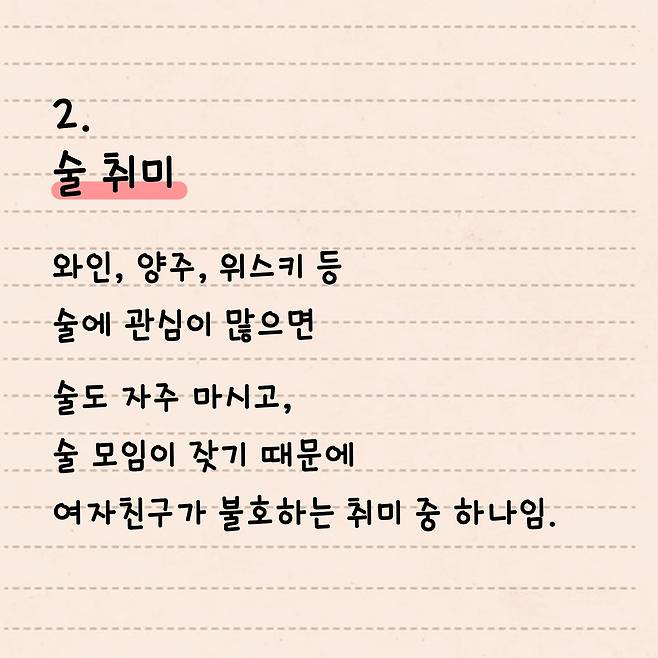 2.
술 취미
와인, 양주, 위스키 등
술에 관심이 많으면
술도 자주 마시고,
술 모임이 잦기 때문에
여자친구가 불호하는 취미 중 하나임.